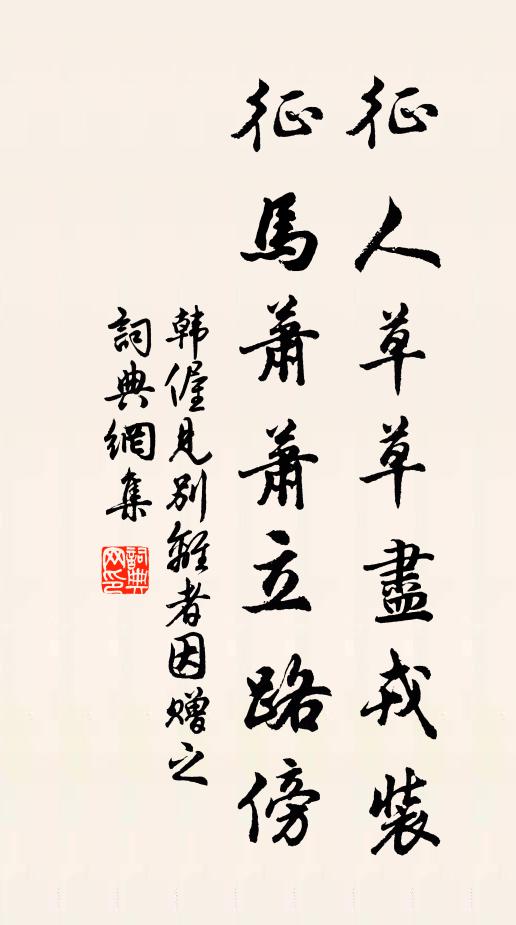 征人草草盡戎裝
征馬蕭蕭立路傍
韩偓見別離者因赠之
詞典網集
詞典网印